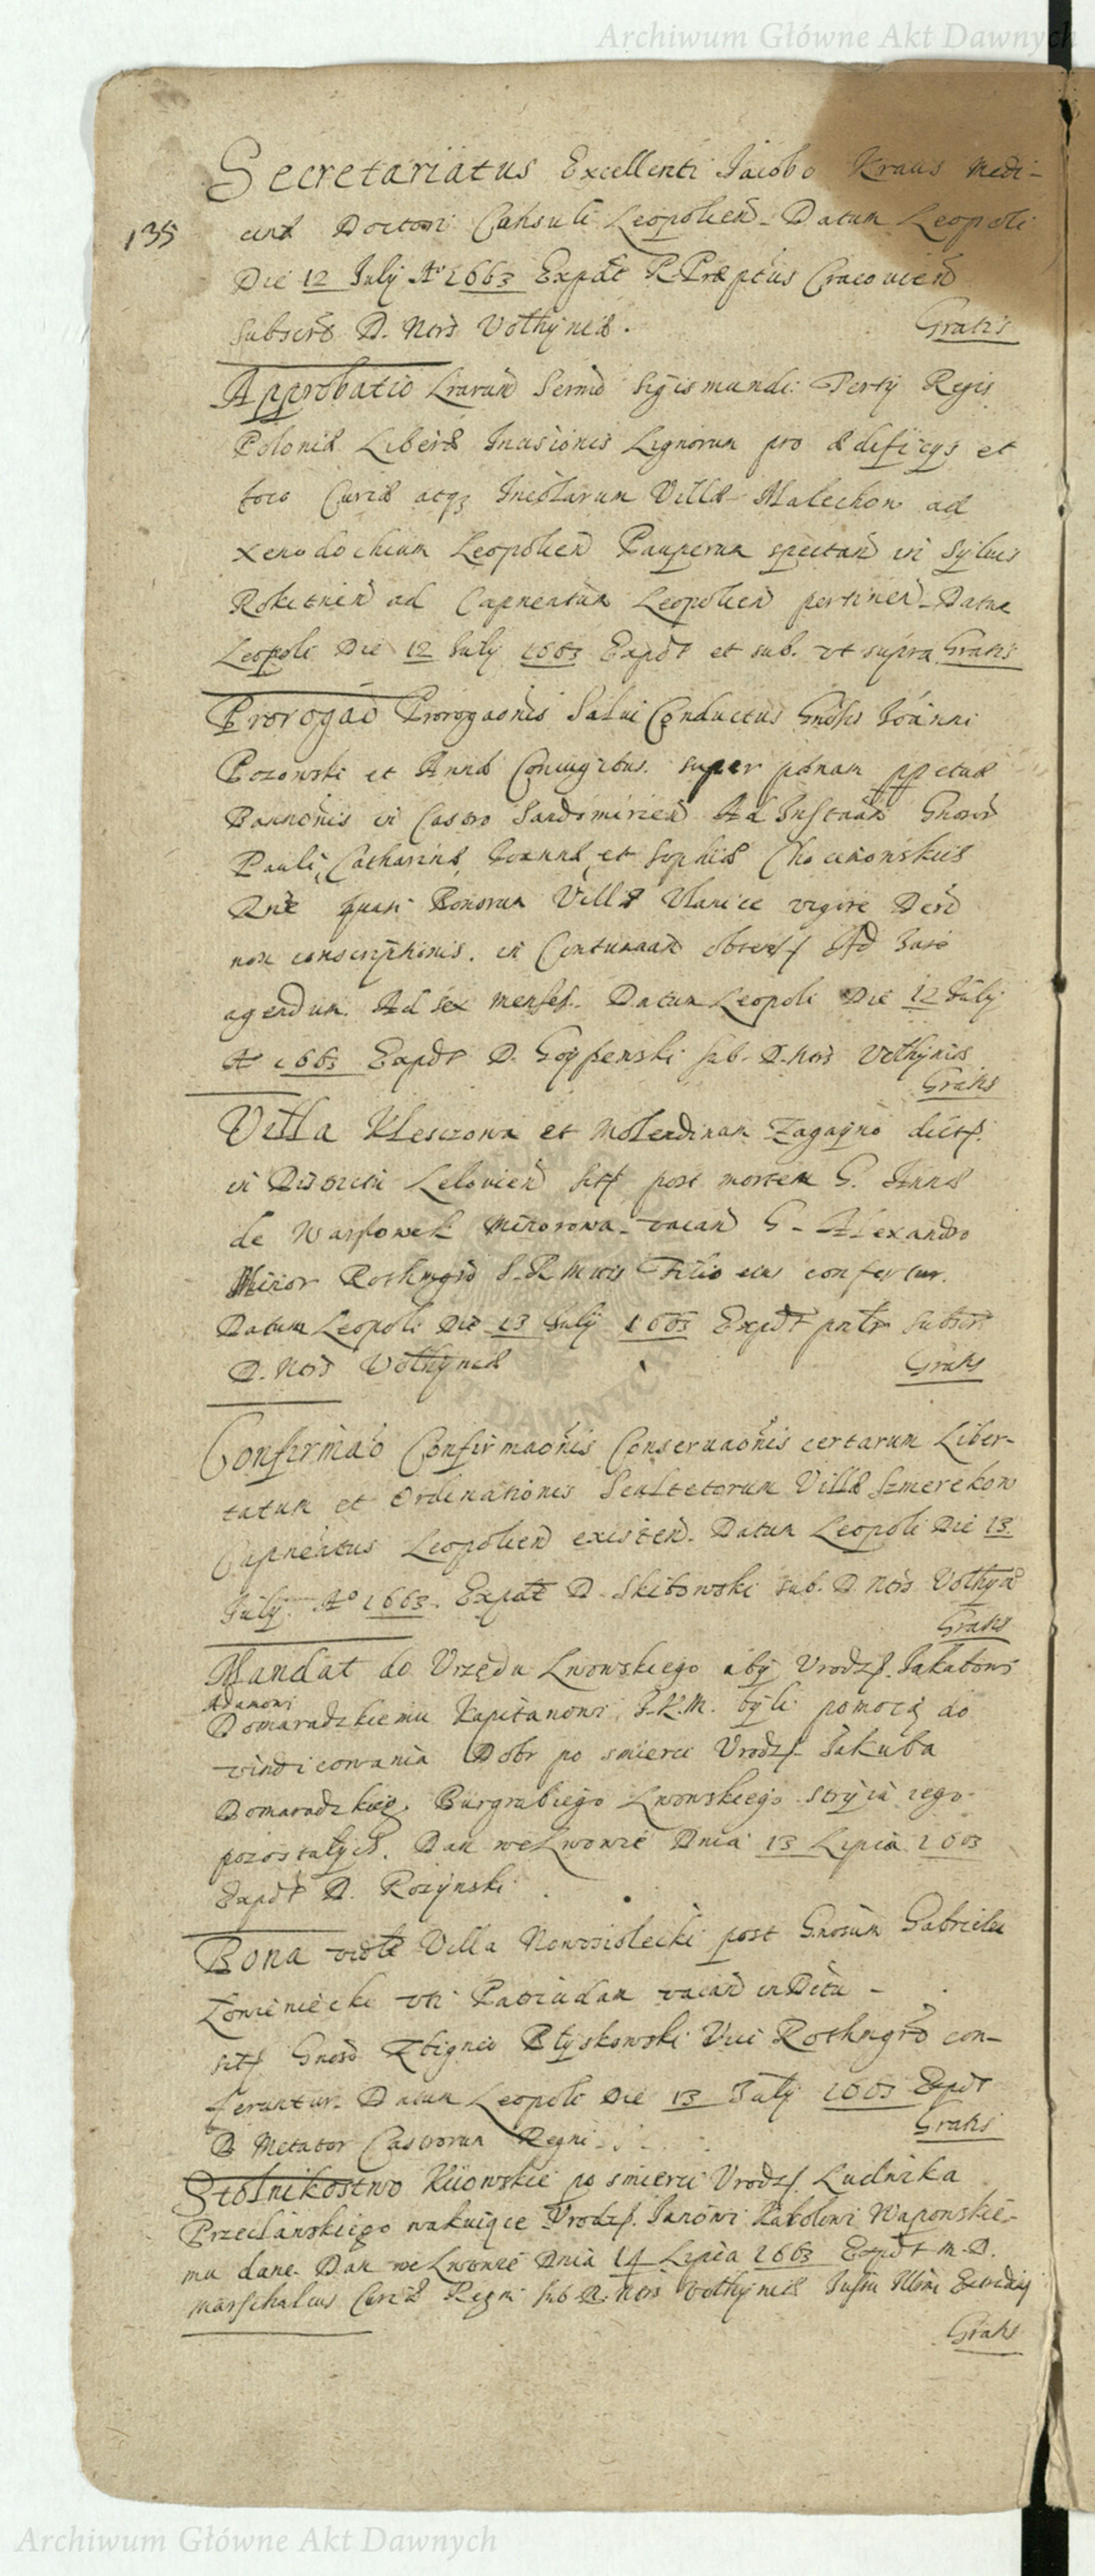 Archiwum Główne Akt Dawnych
Secretariatus Excellenti Jacobo Kraus Medi-
135
cinæ Doctori Consuli Leopolien̄. Datum Leopoli
Die 12 July Aº 1663 Expdt R. Præptus Cracovien̄
subscr D. Nots Volhyniæ.
Gratis
Approbatio Lrarum Sermi Sigismundi Tertij Regis
Poloniæ Liberæ Incisionis Lignorum pro ædificijs et
foco Curiæ atqz Incolarum Villæ Malechow ad
xenodochium Leopolien̄ Pauperum spectan̄ in Syluis
Rokitnen̄ ad Capneatum Leopolien̄ pertinen̄. Datum
Leopoli Die 12 July 1663 Expdt et sub. vt supra Gratis
Prorogao Prorogaonis Salui Conductus Gnosis Joanni
et Annæ Coniugibus super pænam ppetuæ
Bannonis in Castro Sandomirien̄ Ad Instaan Gnorum
Pauli, Catharinæ, Joannæ, et Sophiæ
Rne quasi Bonorum Villæ vigore
non conscriptionis. in Contumaam Ad Jure
agendum. Ad sex menses. Datum Leopoli Die 12 July
Aº 1663 Expdt D. sub. D. Nots Volhyniæ
Gratis
Villa Kleszczowa et Molendinum Zagayno dict.
in Districtu Lelovien̄ sit. post mortem G. Annæ
de Minorowa vacan̄ G. Alexandro
Minor Rothmgro S. R. Mtis Filio eius confertur.
Datum Leopoli Die 13 July 1663 Expdt subscr
D. Nots Volhyniæ
Gratis
Confirmao Confirmaonis Conseruaonis certarum Liber-
tatum et Ordinationis Scultetorum Villæ Szmerekow
Capneatus Leopolien̄ existen̄. Datum Leopoli Die 13.
July Aº 1663. Expdt D. Skibowski sub. D. Nots Volhyn
Gratis
Mandat do Vrzędu Lwowskiego aby Vrodz. Jakubowi
Adamowi
Domaradzkiemu Kapitanowi J.K.M. byli pomocą do
vindicowania Dobr po smierci Vrodz. Jakuba
Domaradzkieg. Burgrabiego Lwowskiego stryia iego
pozostałych. Dan we Lwowie Dnia 13 Lipca 1663
Expdt D. Rozynski
Bona Villa Nowosiolecki post Gnosum Gabrielem
vti vacan̄
sit. Gnoso Zbigneo Błyskowski Vice Rothmgro con-
feruntur. Datum Leopoli Die 13 July 1663 Expdt
D Metator Castrorum Regni
Gratis
Stolnikostwo Kiiowskie po smierci Vrodz. Ludwika
Przecławskiego wakuiące Vrodz. Janowi Karolowi Waponskie-
mu dane. Dan we Lwowie Dnia 14 Lipca 1663 Expdt m. D.
Marschalcus Curiæ Regni sub D. Nots Volhyniæ
Gratis
Archiwum Główne Akt Dawnych